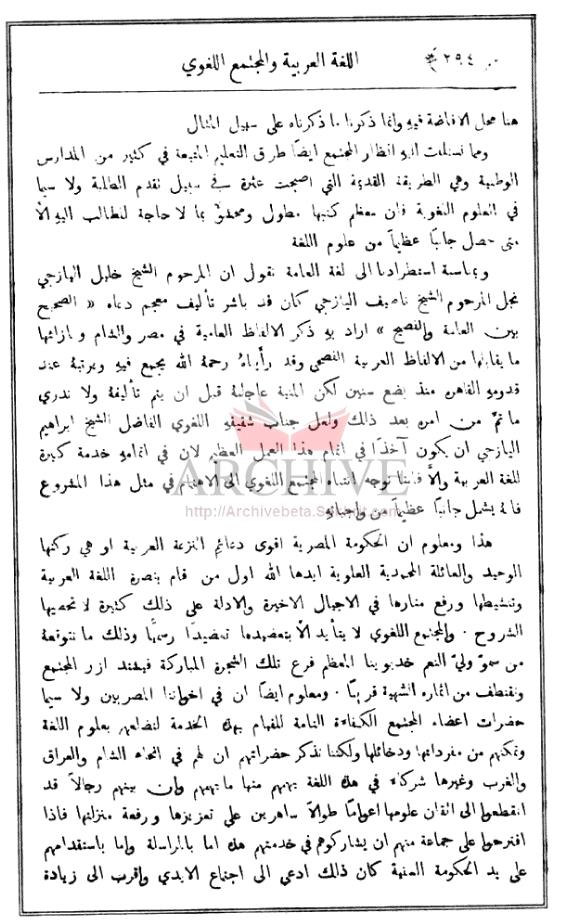 ﴿ ٢٥٤ ﴾ اللغة العربية والمجتمع اللغوي
هنا محل الافاضة فيهِ وانما ذكرنا ما ذكرناه على سبيل المثال
ومما نستلفت اليهِ انظار المجتمع ايضاً طرق التعليم المتبعة في كثير من المدارس
الوطنية وهي الطريقة القديمة التي اصبحت عثرة في سبيل تقدم الطلبة ولا سيما
في العلوم اللغوية فان معظم كتبها مطول ومحشوٌّ بما لا حاجة للطالب اليهِ الَّا
متى حصل جانباً عظيماً من علوم اللغة
وبمناسبة استطرادنا الى لغة العامة نقول ان المرحوم الشيخ خليل اليازجي
نجل المرحوم الشيخ ناصيف اليازجي كان قد باشر تأليف معجم دعاه « الصحيح
بين العامة والفصيح » اراد بهِ ذكر الالفاظ العامية في مصر والشام وبازائها
ما يقابلها من الالفاظ العربية الفصحى وقد رأيناهُ رحمهُ الله يجمع فيهِ ويرتبهُ عند
قدومهِ القاهره منذ بضع سنين لكن المنية عاجلتهُ قبل ان يتم تأليفهُ ولا ندري
ما تمَّ من امره بعد ذلك ولعل جناب شقيقهِ اللغوي الفاضل الشيخ ابراهيم
اليازجي ان يكون آخذاً في اتمام هذا العمل العظيم لان في اتمامهِ خدمة كبيرة
للغة العربية والَّا فاننا نوجه انتباه المجتمع اللغوي الى الاهتمام في مثل هذا المشروع
فانهُ يشمل جانباً عظيماً من واجباتهِ
ARCHIVE
http://Archivebeta.Sakhrit.com
هذا ومعلوم ان الحكومة المصرية اقوى دعائم النزعة العربية او هي ركنها
الوحيد والعائلة المحمدية العلوية ايدها الله اول من قام بنصرة اللغة العربية
وتنشيطها ورفع منارها في الاجيال الاخيرة والادلة على ذلك كثيرة لا تحصيها
الشروح . والمجتمع اللغوي لا يتأيد الَّا بتعضيدها تعضيداً رسمياً وذلك ما نتوقعهُ
من سموّ وليّ النعم خديوينا المعظم فرع تلك الشجرة المباركة فيشتد ازر المجتمع
ونقتطف من اثماره الشهية قريباً . ومعلوم ايضاً ان في اخواننا المصريين ولا سيما
حضرات اعضاء المجتمع الكفاءة التامة للقيام بهذه الخدمة لتضلعهم بعلوم اللغة
وتمكنهم من مفرداتها ودخائلها ولكننا نذكر حضراتهم ان لهم في انحاء الشام والعراق
والغرب وغيرها شركاء في هذه اللغة يهمهم منها ما يهمهم وان بينهم رجالاً قد
انقطعوا الى اتقان علومها اعواماً طوالاً ساهرين على تعزيزها ورفعة منزلتها فاذا
اقترحوا على جماعة منهم ان يشاركوهم في خدمتهم هذه اما بالمراسلة واما باستقدامهم
على يد الحكومة السنية كان ذلك ادعى الى اجتماع الايدي واقرب الى زيادة